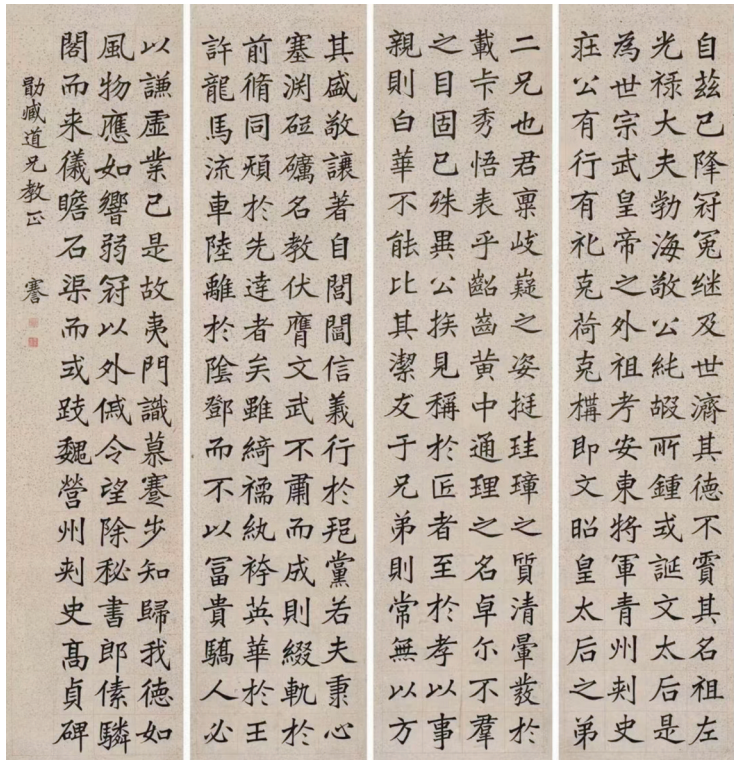 自茲已降冠冕继及世濟其德不霣其名祖左
光禄大夫勃海敬公純嘏所鍾或誕文太后是
為世宗武皇帝之外祖考安東將軍青州刾史
荘公有行有礼克荷克構即文昭皇太后之弟
二兄也君稟岐嶷之姿挺珪璋之質清暈發於
載卡秀悟表乎齠齒黄中通理之名卓尔不羣
之目固已殊異公挨見稱於匠者至於孝以事
親則白華不能比其潔友于兄弟則常無以方
其盛敬讓著自閭閻信義行於邦黨若夫秉心
塞渊砥礪名教伏膺文武不肅而成則綴軌於
前脩同頮於先達者矣雖綺襦紈袴英華於王
許龍馬流車陸離於陰鄧而不以冨貴驕人必
以謙虚業已是故夷門識慕蹇步知歸我德如
風物應如響弱冠以外戚令望除秘書郎傃驎
閣而来儀瞻石渠而或跂魏營州刾史髙貞碑
勖臧道兄教正 謇